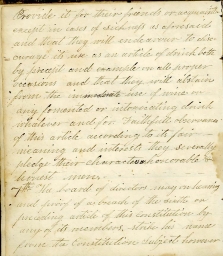 Provide it for their friends or acquaintances
except in cases of sickness as aforesaid
and that they will endeavour to dis-
courage its use as an article of drink both
by precept and example on all proper
occasions and that they will abstain
from the immoderate use of wine or
any fermented or intoxicating drink
whatever and for faithful observance
of this article according to its fair
meaning and interest they severally
pledge their characters honorable &
honest men.
7th The board of directors may on hearing
and proof of a breach of the sixth or
preceding article of this constitution by
any of its members, strike his name
from the Constitution subject however